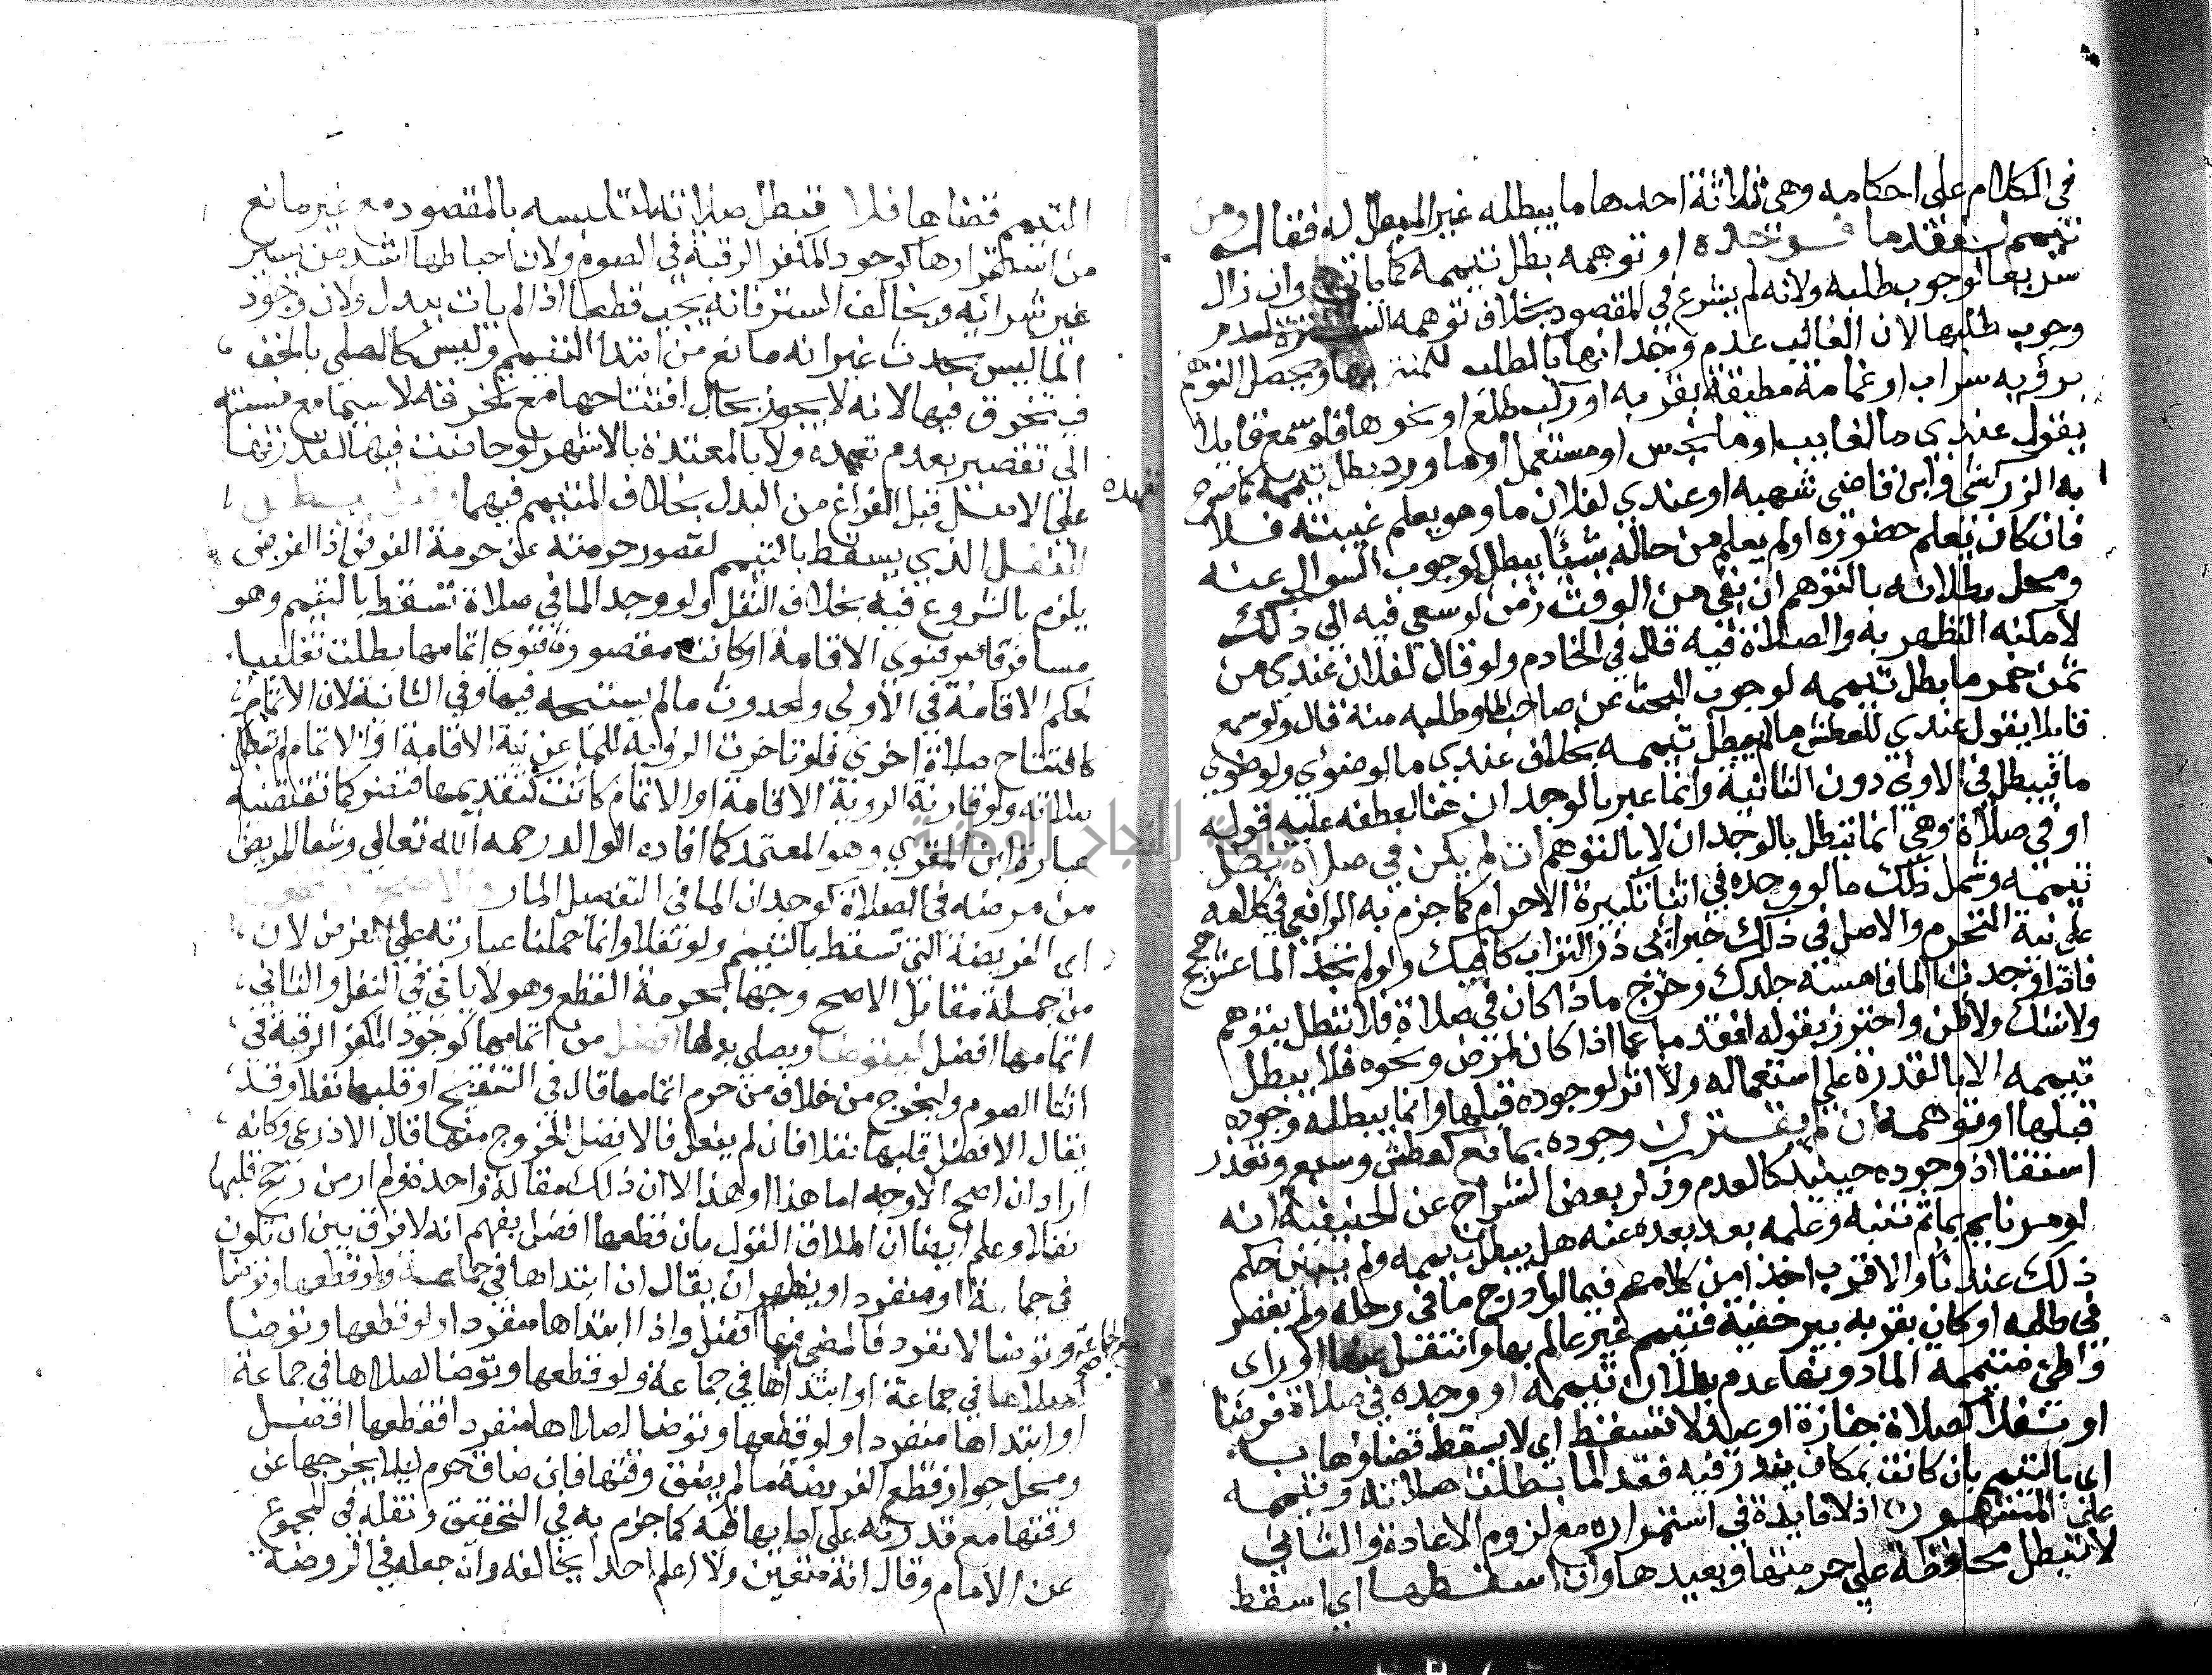 في الكلام على احكامه وهي ثلاثة احدها ما يبطله غير المبطل له فقال ومن
تيمم لفقد ما فوجده او توهمه بطل تيممه كما ياتي وان زال
سريعا لوجوب طلبه ولانه لم يشرع في المقصود بخلاف توهمه السترة لعدم
وجوب طلبها لان الغالب عدم وجدانها بالطلب للضنة بها ويحصل التوهم
برؤيه سراب او غمامة مطبقة بقربه او ركب طلع او نحوها فلو سمع قايلا
يقول عندي ما لغايب او ما نجس او مستعمل او ما ورد بطل تيممه كما صرح
به الزركشي وابن قاضي شهبه او عندي لفلان ما وهو يعلم غيبته فلا
فان كان يعلم حضوره او لم يعلم من حاله شئا يبطل لوجوب السوال عنه
ومحل بطلانه بالتوهم ان بقي من الوقت زمن لو سعي فيه الى ذلك
لامكنه التطهر به والصلاة فيه قال في الخادم ولو قال لفلان عندي من
ثمن خمر ما بطل تيممه لوجوب البحث عن صاحب الما وطلبه منه قال ولو سمع
قايلا يقول عندي للعطش ما لم يبطل تيممه بخلاف عندي ما لوضوئي ولو طهري
ما فيبطل في الاولى دون الثانية وانما عبر بالوجدان هنا لعطفه عليه قوله
او في صلاة وهي انما تبطل بالوجدان لا بالتوهم ان لم يكن في صلاة بطل
تيممه وشمل ذلك ما لو وجده في اثنا تكبيرة الاحرام كما جزم به الرافعي في كلامه
على نية التحرم والاصل في ذلك خبر ابي ذر التراب كافيك ولو لم تجد الما عشر حجج
فاذا وجدت الما فامسه جلدك وخرج ما اذا كان في صلاة فلا تبطل بتوهم
ولا شك ولا ظن واحترز بقوله لفقد ما عما اذا كان لمرض ونحوه فلا يبطل
تيممه الا بالقدرة على استعماله ولا اثر لوجوده قبلها وانما يبطله وجوده
قبلها او توهمه ان لم يقترن وجوده بمانع كعطش وسبع وتعذر
استقا اذ وجوده حينيذ كالعدم وذكر بعض الشراح عن الحنيفية انه
لو مر نايم بما ثم تنبه وعلمه بعد بعده عنه هل يبطل تيممه ولم يبين حكم
ذلك عندنا والاقرب اخذا من كلامهم فيما لو ادرج ما في رحله ولم يقصر
في طلبه او كان بقربه بير خفية فتيمم غير عالم بها وانتقل عنها او راى
واطئ متيممة الما دونها عدم بطلان تيممه او وجده في صلاة فرضا
او نفلا كصلاة جنازة او عيد لا تسقط اي لا يسقط قضاؤها به
اي بالتيمم بان كانت بمكان يندر فيه فقد الما بطلت صلاته وتيممه
على المشهور اذ لا فايدة في استمراره مع لزوم الاعادة والثاني
لا تبطل محافظة على حرمتها ويعيدها وان اسقطها اي اسقط
التيمم قضاها فلا تبطل صلاته لتلبسه بالمقصود مع غير مانع
من استمرارها كوجود المكفر الرقبة في الصوم ولان احباطها اشد من يسير
غبن شرائه ويخالف السترة فانه يجب قطعها اذ لم يات ببدل ولان وجود
الما ليس بحدث غير انه مانع من ابتدا التيمم وليس كالمصلي بالخف
فيتخرق فيها لانه لا يجوز بحال افتتاحها مع تخرقه لا سيما مع نسبته
الى تقصير بعدم تعهده ولا بالمعتدة بالاشهر لو حاضت فيها لقدرتها
تعهده
على الاصل قبل الفراغ من البدل بخلاف المتيمم فيهما وقيل يبطل
النفل الذي يسقط بالتيمم لقصور حرمته عن حرمة الفرض اذ الفرض
يلزم بالشروع فيه بخلاف النفل ولو وجد الما في صلاة تسقط بالتيمم وهو
مسافر قاصر فنوى الاقامة او كانت مقصورة فنوى اتمامها بطلت تغليبا
لحكم الاقامة في الاولى ولحدوث ما لم يستبحه فيها وفي الثانية لان الاتمام
كافتتاح صلاة اخرى فلو تاخرت الرؤية للما عن نية الاقامة او الاتمام لم تبطل
صلاته ولو قارنة الروية الاقامة او الاتمام كانت كتقديمها فتضر كما تقتضيه
عبارة ابن المقري وهو المعتمد كما افاده الوالد رحمه الله تعالى وشفا المريض
من مرضه في الصلاة كوجدان الما في التفصيل المار والاصح ان قطعها
اي الفريضة التي تسقط بالتيمم ولو نفلا وانما حملنا عبارته على الفرض لان
من جملة مقابل الاصح وجها بحرمة القطع وهو لا ياتي في النفل والثاني
اتمامها افضل ليتوضا ويصلي بدلها افضل من اتمامها كوجود المكفر الرقبة في
اثنا الصوم وليخرج من خلاف من حرم اتمامها قال في التنقيح او قلبها نفلا وقد
يقال الافضل قلبها نفلا فان لم يفعل فالافضل الخروج منها قال الاذرعي وكانه
اراد ان اصح الاوجه اما هذا او هذا لا ان ذلك مقالة واحدة ولم ار من رجح قلبها
نفلا وعلم ايضا ان اطلاق القول بان قطعها افضل يفهم انه لا فرق بين ان تكون
في جماعة او منفرد او يظهر ان يقال ان ابتداها في جماعة ولو قطعها وتوضا
وتوضا لانفرد فالمضي فيها افضل واذا ابتداها منفردا ولو قطعها وتوضا
لصلاها في جماعة او ابتداها في جماعة ولو قطعها وتوضا لصلاها في جماعة
او ابتداها منفردا ولو قطعها وتوضا لصلاها منفردا فقطعها افضل
ومحل جواز قطع الفريضة ما لم يضق وقتها فان ضاق حرم ليلا يخرجها عن
وقتها مع قدرته على ادايها فيه كما جزم به في التحقيق ونقله في المجموع
عن الامام وقال انه متعين ولا اعلم احدا يخالفه وان جعله في الروضة
جامعة النجاح الوطنية